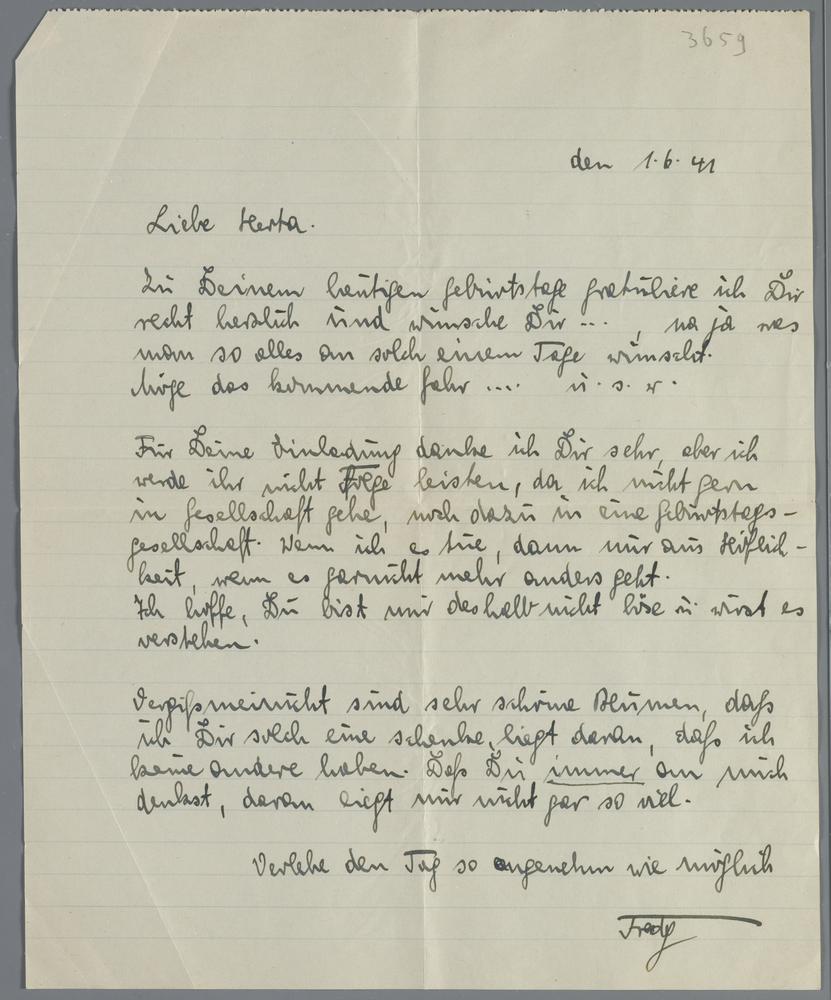 3659
den 1.6.41
Liebe Herta.
Zu Deinem heutigen Geburtstage gratuliere ich Dir
recht herzlich und wünsche Dir ... , na ja was
man so alles an solch einem Tage wünscht.
Möge das kommende Jahr .... u. s. w.
Für Deine Einladung danke ich Dir sehr, aber ich
werde ihr nicht Folge leisten, da ich nicht gern
in Gesellschaft gehe, noch dazu in eine Geburtstags-
gesellschaft. Wenn ich es tue, dann nur aus Höflich-
keit, wenn es garnicht mehr anders geht.
Ich hoffe, Du bist mir deshalb nicht böse u. wirst es
verstehen.
Vergißmeinnicht sind sehr schöne Blumen, daß
ich Dir solch eine schenke, liegt daran, daß ich
keine andere haben. Daß Du immer an mich
denkst, daran liegt mir nicht gar so viel.
Verlebe den Tag so angenehm wie möglich
Fredy